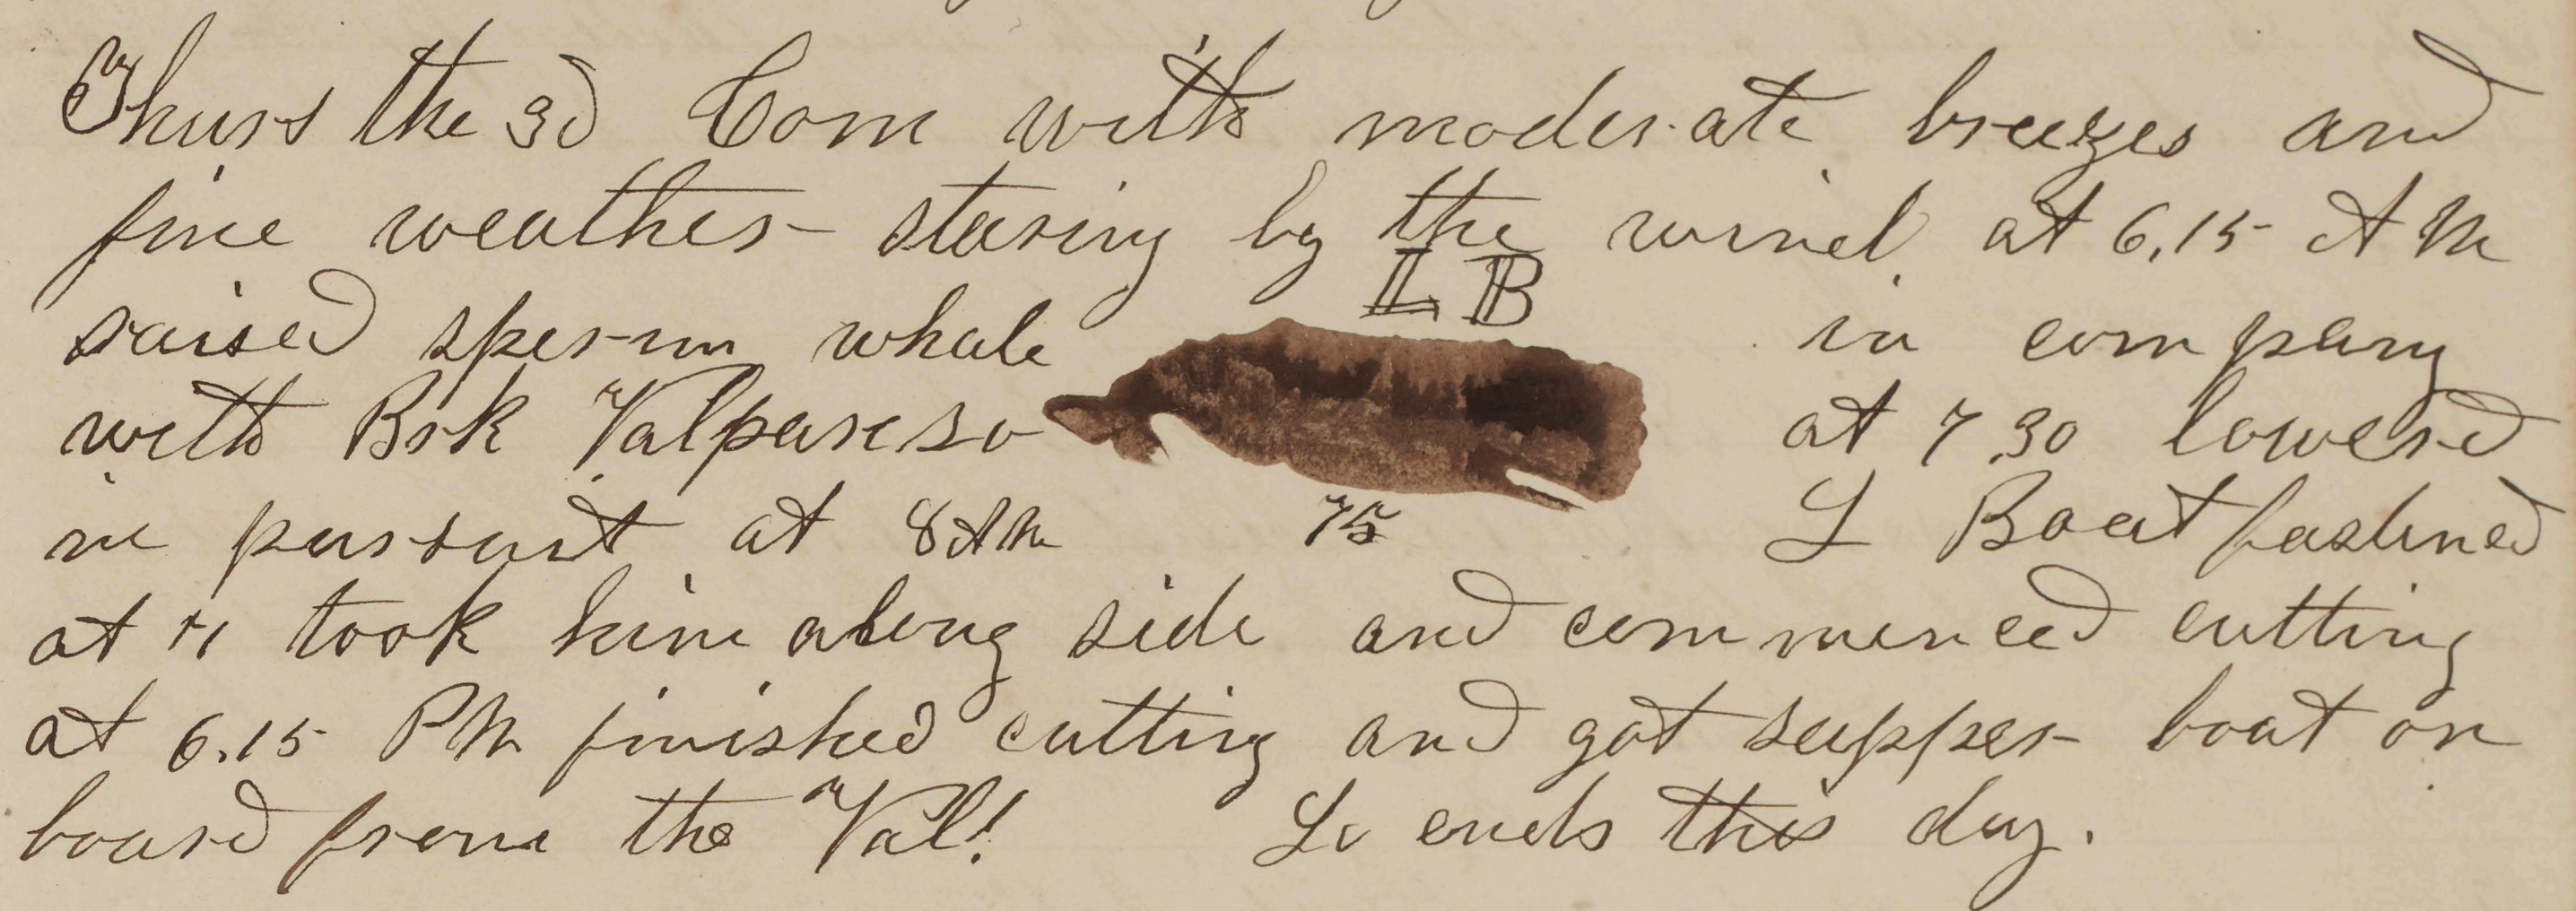 Thurs the 3d Com with moderate breezes and
fine weather stering by the wind at 6,15 A M
L B
raised sperm whale in company
with Brk Valpareso at 7.30 lowerd
in pursuit at 8 AM 75 L Boat fastened
at 11 took him along side and commenced cutting
at 6.15 PM finished cutting and got supper boat on
board from the Val! So ends this day.